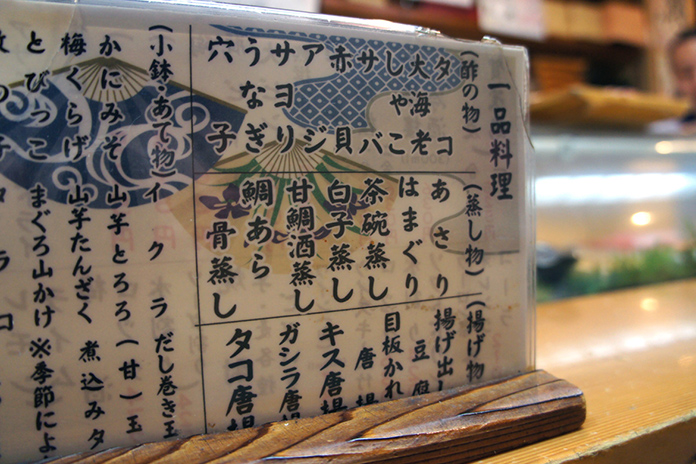 一品料理
(酢の物)
タコ
大海老
しゃこ
サバ
赤貝
アジ
サヨリ
うなぎ
穴子
(蒸し物)
あさり
はまぐり
茶碗蒸し
白子蒸し
甘鯛酒蒸し
鯛あら
骨蒸し
(揚げ物)
揚げ出し
豆腐
目板かれ
唐揚
キス唐揚
ガシラ唐揚
タコ唐揚
(小鉢・あて物) イクラ だし巻き玉
かにみそ 山芋とろろ (甘)玉
梅くらげ 山芋たんざく 煮込みタ
とびっこ まぐろ山かけ ※季節によ
の子 タラコ